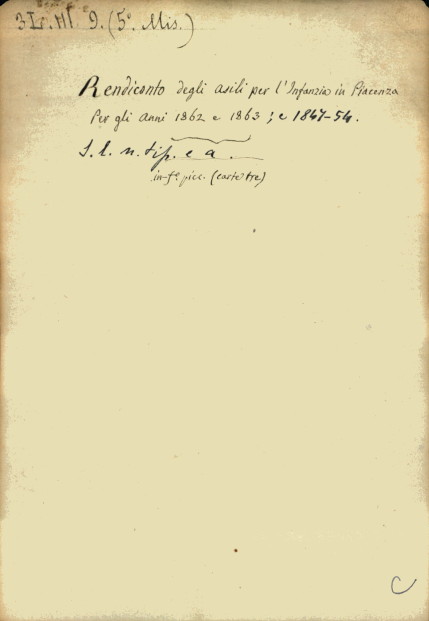 3Lr.III 9. (5ª Mis.)
Rendiconto degli asili per l'Infanzia in Piacenza
Per gli anni 1862 e 1863; e 1847-54.
S. l. n. tip. e a.
in-fº picc. (carte tre)
C